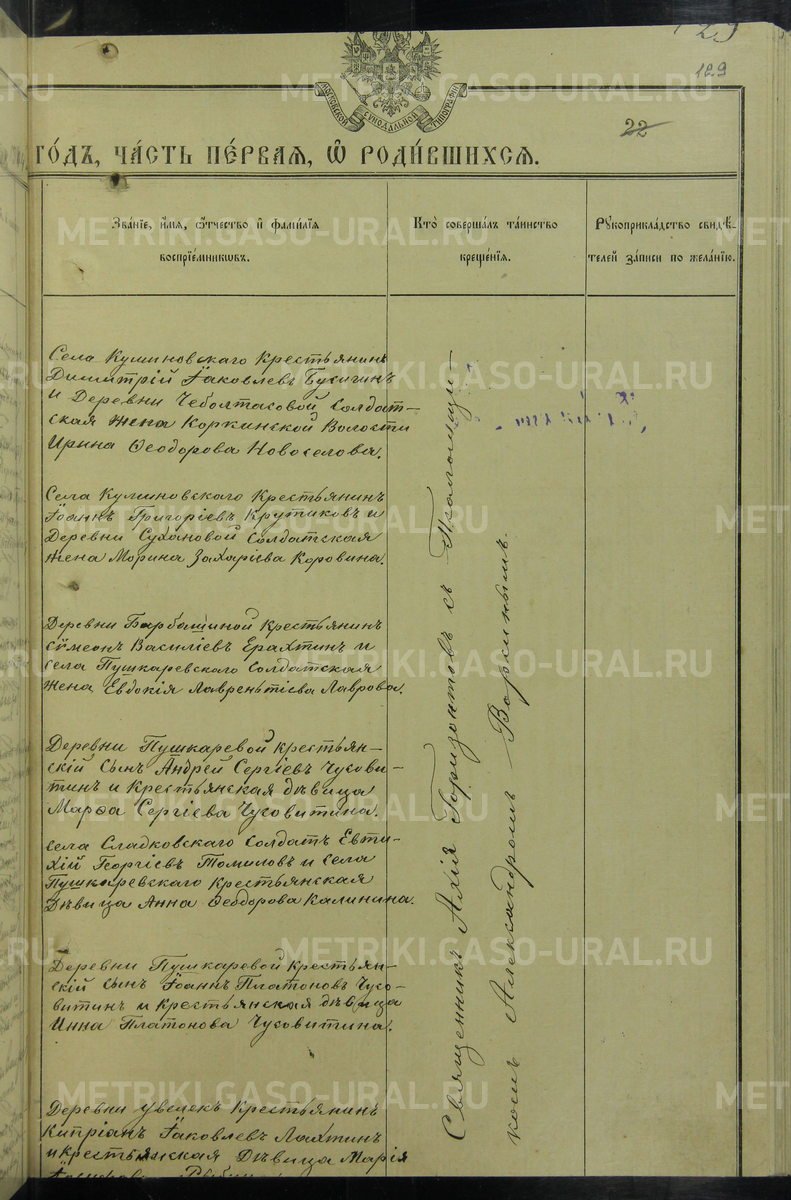 129
22
МОСКОВСКОЙ СѴНОДАЛЬНОЙ ТИПОГРАФІИ
ГО́ДЪ, ЧА́СТЬ ПЕ́РВАѦ, Ѡ҆ РОДИ́ВШИХСѦ.
Зва́нїе, и҆́мѧ, ѻ҆́тчество и҆ фами́лїѧ
воспрїе́мникѡвъ.
Кто̀ соверша́лъ та́инство
креще́нїѧ.
Рꙋкоприкла́дство свидѣ́-
телей за́писи по жела́нїю.
Села Куминовскаго Крестьянинъ
Димитрій Іаковлевъ Бусыгинъ
и Деревни Чеболтасовой Солдат-
ская жена Коркинской Волости
Ирина Ѳеодорова Новоселова.
Села Куминовскаго Крестьянинъ
Іоаннъ Григоріевъ Крутиковъ и
Деревни Сухановой Солдатская
жена Морина Захаріева Коровина.
Деревни Барбашиной Крестьянинъ
Сѵмеонъ Василіевъ Ерахтинъ и
села Пушкаревскаго Солдатская
жена Евдокія Лаврентіева Лаврова.
Деревни Пушкаревой крестьян-
скій Сынъ Андрей Сергіевъ Чусови-
тинъ и Крестьянская дѣвица
Марѳа Сергіева Чусовитина.
Села Сладковскаго Солдатъ Евти-
хій Георгіевъ Томиловъ и Села
Пушкаревскаго Крестьянская
Дѣвица Анна Ѳеодорова Калинина.
Деревни Пушкаревой Крестьян-
скій сынъ Іоаннъ Платоновъ Чусо-
витинъ и Крестьянская дѣвица
Инна Платонова Чусовитина.
Деревни Увелекъ Крестьянинъ
Кипріанъ Іаковлевъ Лахтинъ
и крестьянская Дѣвица Марія
Священникъ Алхія Горизонтовъ съ Псаломщи-
комъ Александромъ Ворсинымъ.
METRIKI.GASO-URAL.RU